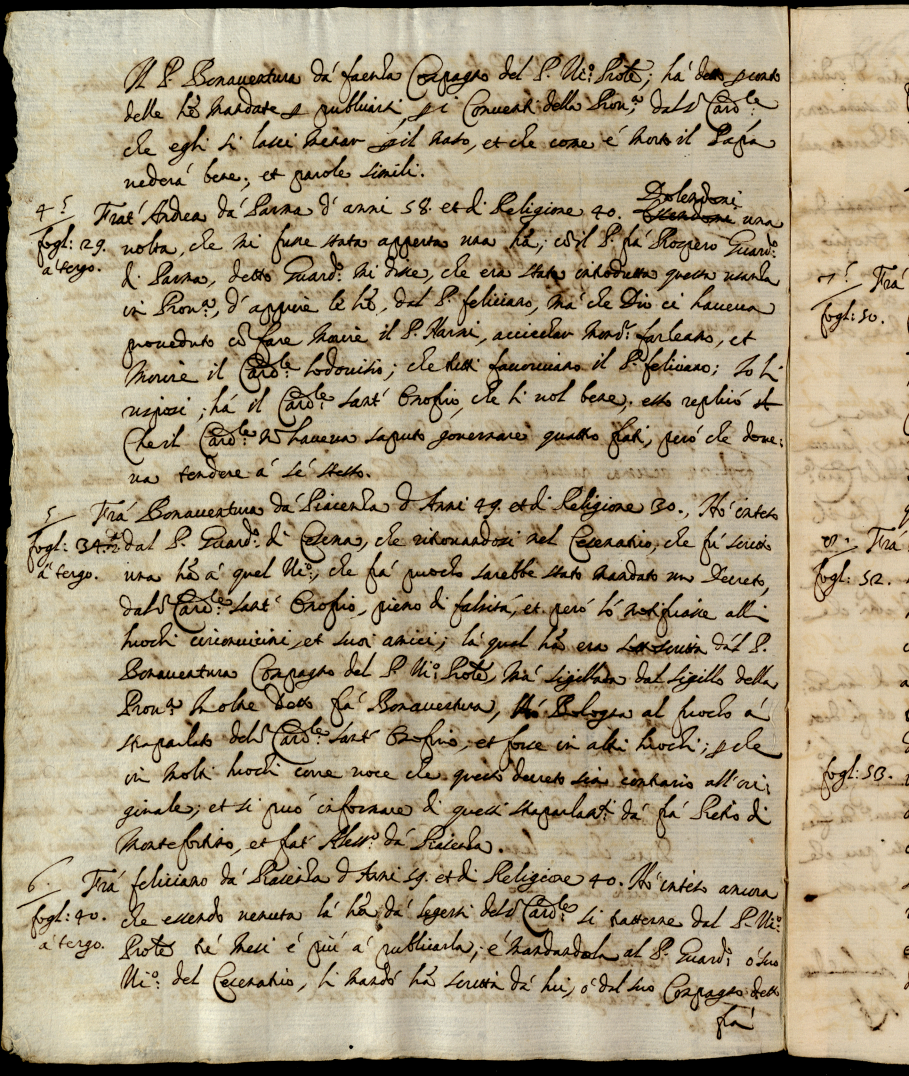 Il P. Bonauentura dá faenza Compagno del P. Vic.º Prõle; há detto p conto
delle lrẽ mandate p publicarsi p i Conuenti della Prou.ª dal s.r Card.le
che egli si lasci menar p il naso, et che come é morto il Papa
uederá bene; et parole simili.
4.º Frat' Andrea dá Parma d' anni 58. et di Religione 40. Dolendomi una
fogl: 29. uolta, che mi fusse stata apperta una lrã; cõ il P. frá Prospero Guard.º
á tergo. di Parma, detto Guard.º mi disse, che era stata introdutta questa usanza
in Prou.ª, d' apprire le lrẽ, dal P. feliciano, má che Dio ci haueua
proueduto cõ fare morire il P. Narni, acciecar Mons.r et
morire il Card.le Lodouisio; che tutti fauoriuano il P. feliciano; Io li
risposi; há il Card.le Sant' Onofrio, che li uol bene; esso replicó
Che il Card.le nõ haueua saputo gouernare quattro frati, peró che doue:
ua tendere á sé stesso.
5. Frá Bonauentura dá Piacenza d' Anni 49. et di Religione 30., Hó inteso
fogl: 34. dal P. Guard.º di Cesena, che ritrouandosi nel Cesenatico, che fú scritto
á tergo. una lrã á quel Vic.º, che frá puocho sarebbe stato mandato un Decreto,
dal s.r Card.le Sant' Onofrio, pieno di falsitá, et peró ló notificasse alli
luochi circonuicini, et suoi amici; la qual lrã era sottoscritta dal P.
Bonauentura Compagno del P. Vic.º Prõle, má sigillata dal sigillo della
Prou.ª Inoltre detto frá Bonauentura, Bologna al fuocho á
straparlato del s.r Card.le Sant' Onofrio, et forse in altri luochi; p che
in molti luochi corre uoce che questo decreto sia contrario all' ori:
ginale; et si puó informare di questi straparlam.ti dá frá Pietro di
Montefortino, et frat' Aless.º dá Piacenza.
6. Frá feliciano dá Piacenza d' Anni 59. et di Religione 40. Hó inteso ancora
fogl: 40. che essendo uenuta la lrã dá legersi del s.r Card.le si tratenne dal P. Vic.º
á tergo. Prõle tré mesi é piú á publicarla; é mandandola al P. Guard.º ó suo
Vic.º del Cesenatico, li mandó lrã scritta dá lui, ó dal suo Compagno detto
frá
7.º Frá
fogl: 50.
8. Frá
fogl: 52.
fogl: 53.